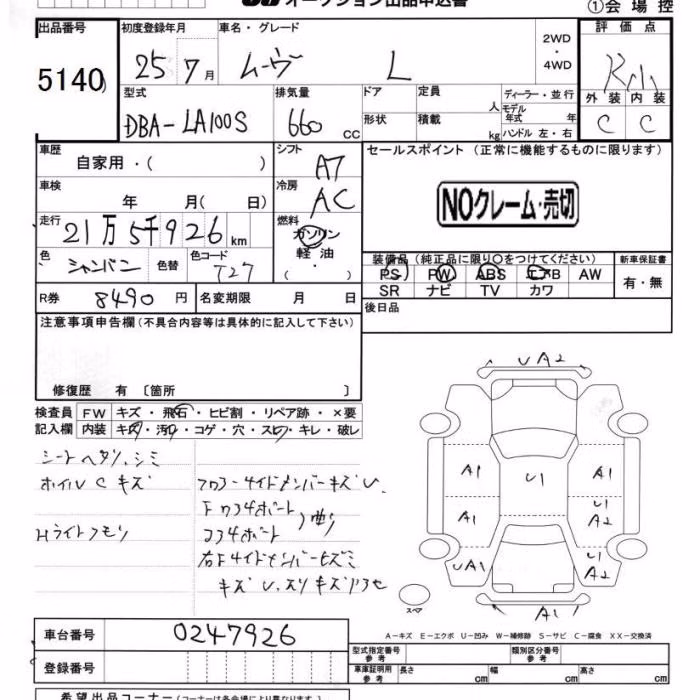 オークション出品申込書
①会場控
出品番号
5140
初度登録年月
25 7月
車名・グレード
ムーヴ L
2WD
・
4WD
評価点
外装 内装
C C
型式
DBA-LA100S
排気量
660 cc
ドア
定員 人
形状
積載 kg
ディーラー・並行
モデル年式 年
ハンドル 左・右
車歴
自家用・( )
シフト
A7
セールスポイント (正常に機能するものに限ります)
NOクレーム・売切
車検
年 月( 日)
冷房
AC
走行
21万5千926km
燃料
ガソリン
軽油
( ・ )
色
シャンパン
色替
色コード
T27
装備品(純正品に限り○をつけてください)
新車保証書
PS PW ABS エアB AW
SR ナビ TV カワ
有・無
R券 8490円
名変期限 月 日
後日品
注意事項申告欄(不具合内容等は具体的に記入して下さい)
修復歴 有 〔箇所 〕
検査員記入欄
FW キズ・飛石・ヒビ割・リペア跡・×要
内装 キズ・汚レ・コゲ・穴・スレ・キレ・破レ
シートヘタリ、シミ
ホイルCキズ
Hライトクモリ
コアヨサイドメンバーキズU、
コアサポート
右Fサイドメンバーヒズミ
UA2
A1 U1 A1
A1 U1 A2
UA1 U1 A2
A1
スペア
A-キズ E-エクボ U-凹み W-補修跡 S-サビ C-腐食 XX-交換済
車台番号 0247926
登録番号
型式指定番号 参考
類別区分番号 参考
車庫証明用 参考
長さ cm 幅 cm 高さ cm
希望出品コーナー(コーナーは各会場で異なります。)